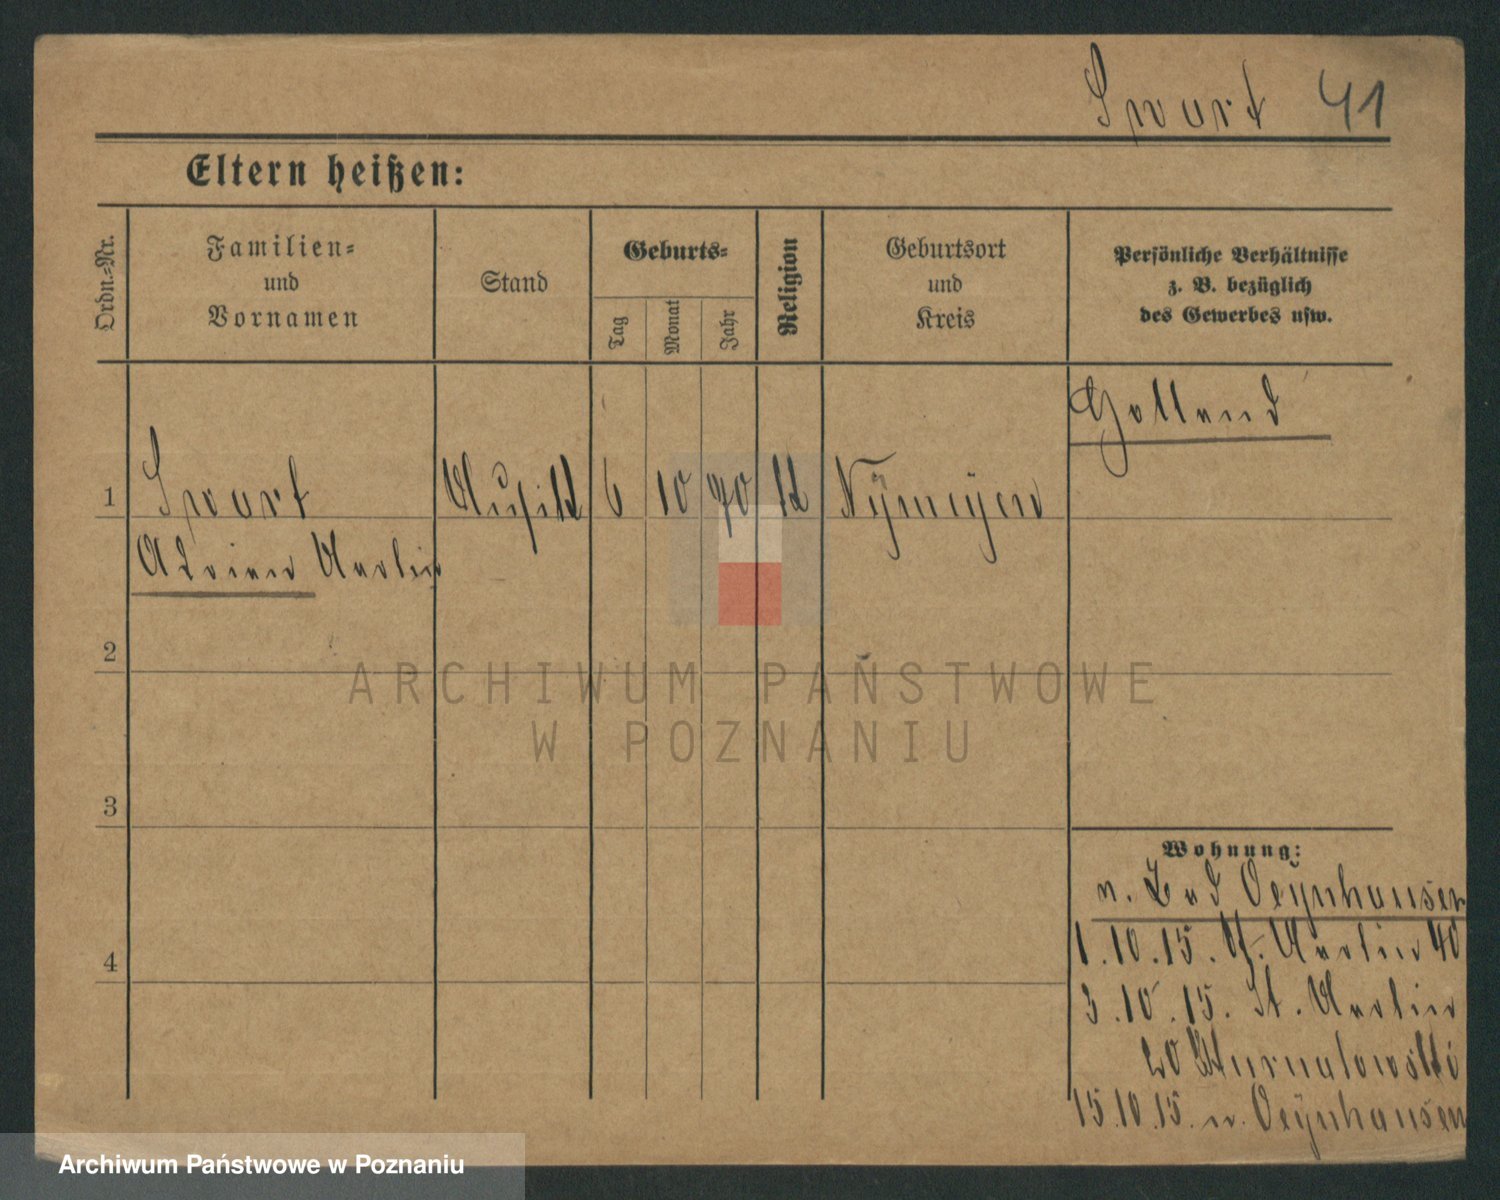 Swart 41
Eltern heißen:
Ordn.=Nr.
Familien=
und
Vornamen
Stand
Geburts=
Tag
Monat
Jahr
Religion
Geburtsort
und
Kreis
Persönliche Verhältnisse
z. B. bezüglich
des Gewerbes usw.
Holland
1 Swart 6 10 70 k Nymegen
Adrian
2
3
4
Wohnung:
n. Bad Oeynhausen
1.10.15. 40
3.10.15. St.
20
15.10.15. n. Oeynhausen
ARCHIWUM PAŃSTWOWE
W POZNANIU
Archiwum Państwowe w Poznaniu